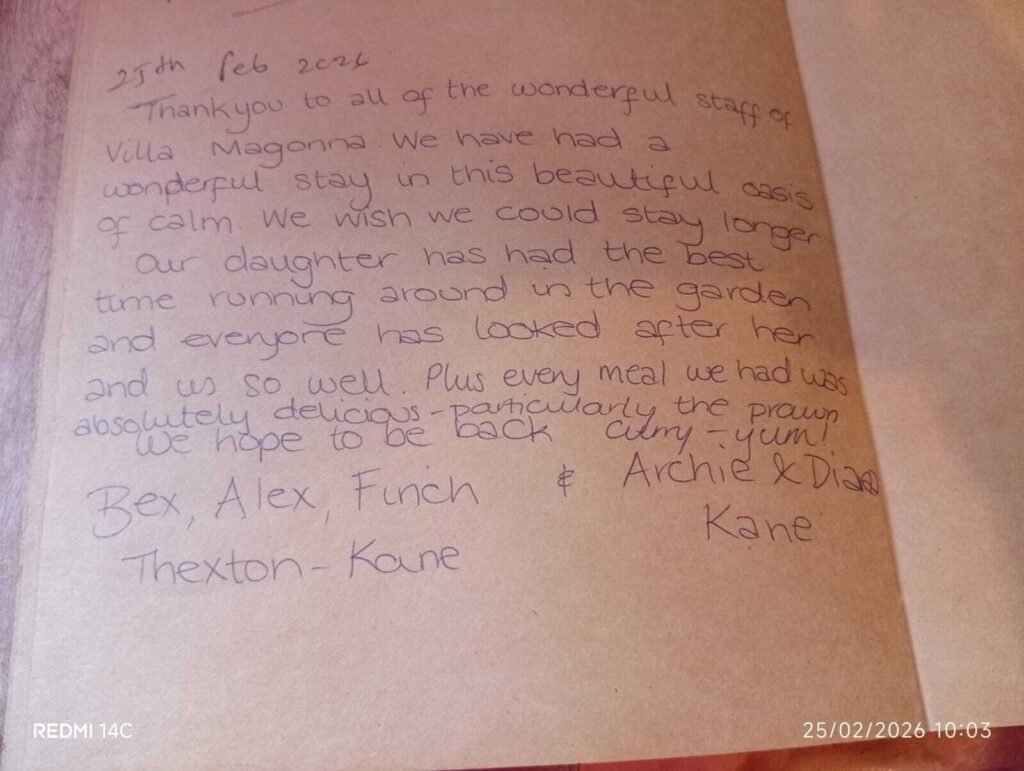 25th Feb 2026
Thankyou to all of the wonderful staff of
Villa Magonna. We have had a
wonderful stay in this beautiful oasis
of calm. We wish we could stay longer
Our daughter has had the best
time running around in the garden
and everyone has looked after her
and us so well. Plus every meal we had was
absolutely delicious - particularly the prawn
curry - yum!
We hope to be back
Bex, Alex, Finch & Archie & Diane
Thexton - Kane Kane
REDMI 14C
25/02/2026 10:03